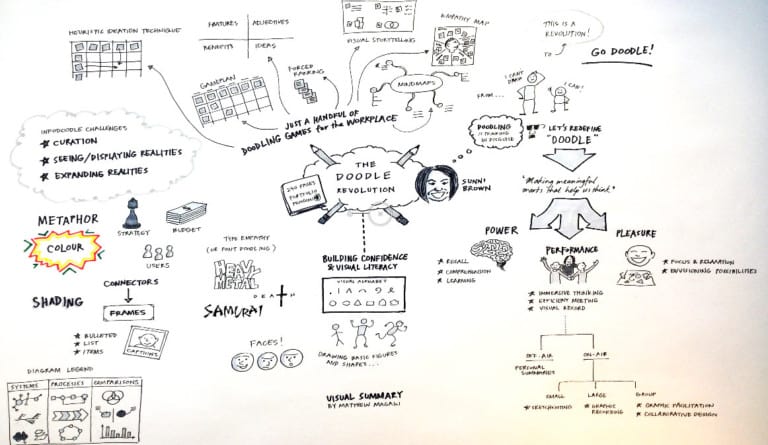 HEURISTIC IDEATION TECHNIQUE
FEATURES
ADJECTIVES
BENEFITS
IDEAS
VISUAL STORYTELLING
EMPATHY MAP
GAMEPLAN
FORCED
RANKING
MINDMAPS
JUST A HANDFUL OF
DOODLING GAMES for the WORKPLACE
THIS IS A
REVOLUTION!
TO
GO DOODLE!
FROM...
I CAN'T
DRAW
I CAN!
INFODOODLE CHALLENGES
★ CURATION
★ SEEING/DISPLAYING REALITIES
★ EXPANDING REALITIES
THE
DOODLE
REVOLUTION
250 PAGES
PORTFOLIO
SUNNI
BROWN
DOODLING
IS THINKING
IN DISGUISE
LET'S REDEFINE
"DOODLE"
"Making meaningful
marks that help us think."
METAPHOR
COLOUR
SHADING
STRATEGY
BUDGET
USERS
CONNECTORS
FRAMES
★ BULLETED
★ LIST
★ ITEMS
CAPTIONS
TYPE EMPATHY
(OR FONT DOODLING)
HEAVY
METAL
DEATH
SAMURAI
FACES!
BUILDING CONFIDENCE
& VISUAL LITERACY
VISUAL ALPHABET
DRAWING BASIC FIGURES
AND SHAPES...
VISUAL SUMMARY
BY MATTHEW MAGAIN
POWER
★ RECALL
★ COMPREHENSION
★ LEARNING
PERFORMANCE
★ IMMERSIVE THINKING
★ EFFICIENT MEETING
★ VISUAL RECORD
PLEASURE
★ FOCUS & RELAXATION
★ ENVISIONING POSSIBILITIES
OFF-AIR
PERSONAL
SUMMARIES
ON-AIR
SMALL
★ SKETCHNOTING
LARGE
★ GRAPHIC
RECORDING
GROUP
★ GRAPHIC FACILITATION
★ COLLABORATIVE DESIGN
DIAGRAM LEGEND
SYSTEMS
PROCESSES
COMPARISONS